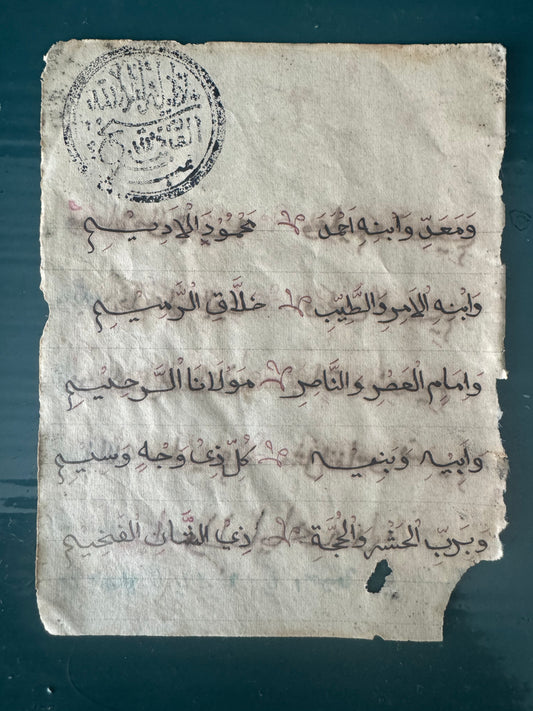 وَمَعَدٍّ وَابنِهِ اَحمَدَ مَحمُودِ الاَدِيمِ
وَابنِهِ الاٰمِرِ وَالطَّيِّبِ خلَّاقِ الرَّمِيمِ
وَاِمَامِ العَصرِ وَالنَّاصِرِ مَولَانَا الرَّحِيمِ
وَاَبِيهِ وَبَنِيهِ كُلِّ ذِي وَجهٍ وَسِيمِ
وَبِرَبِّ الحَشرِ وَالحُجَّةِ ذِي الشَّانِ الفَخِيمِ